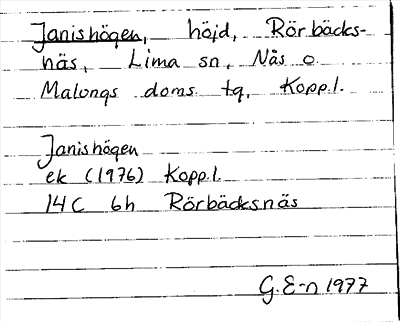 Janishögen, höjd, Rörbäcks-
näs, Lima sn, Nås o
Malungs doms. tg, Kopp.l.
Janishögen
ek (1976) Kopp.l.
14C 6h Rörbäcksnäs
G.E-n 1977